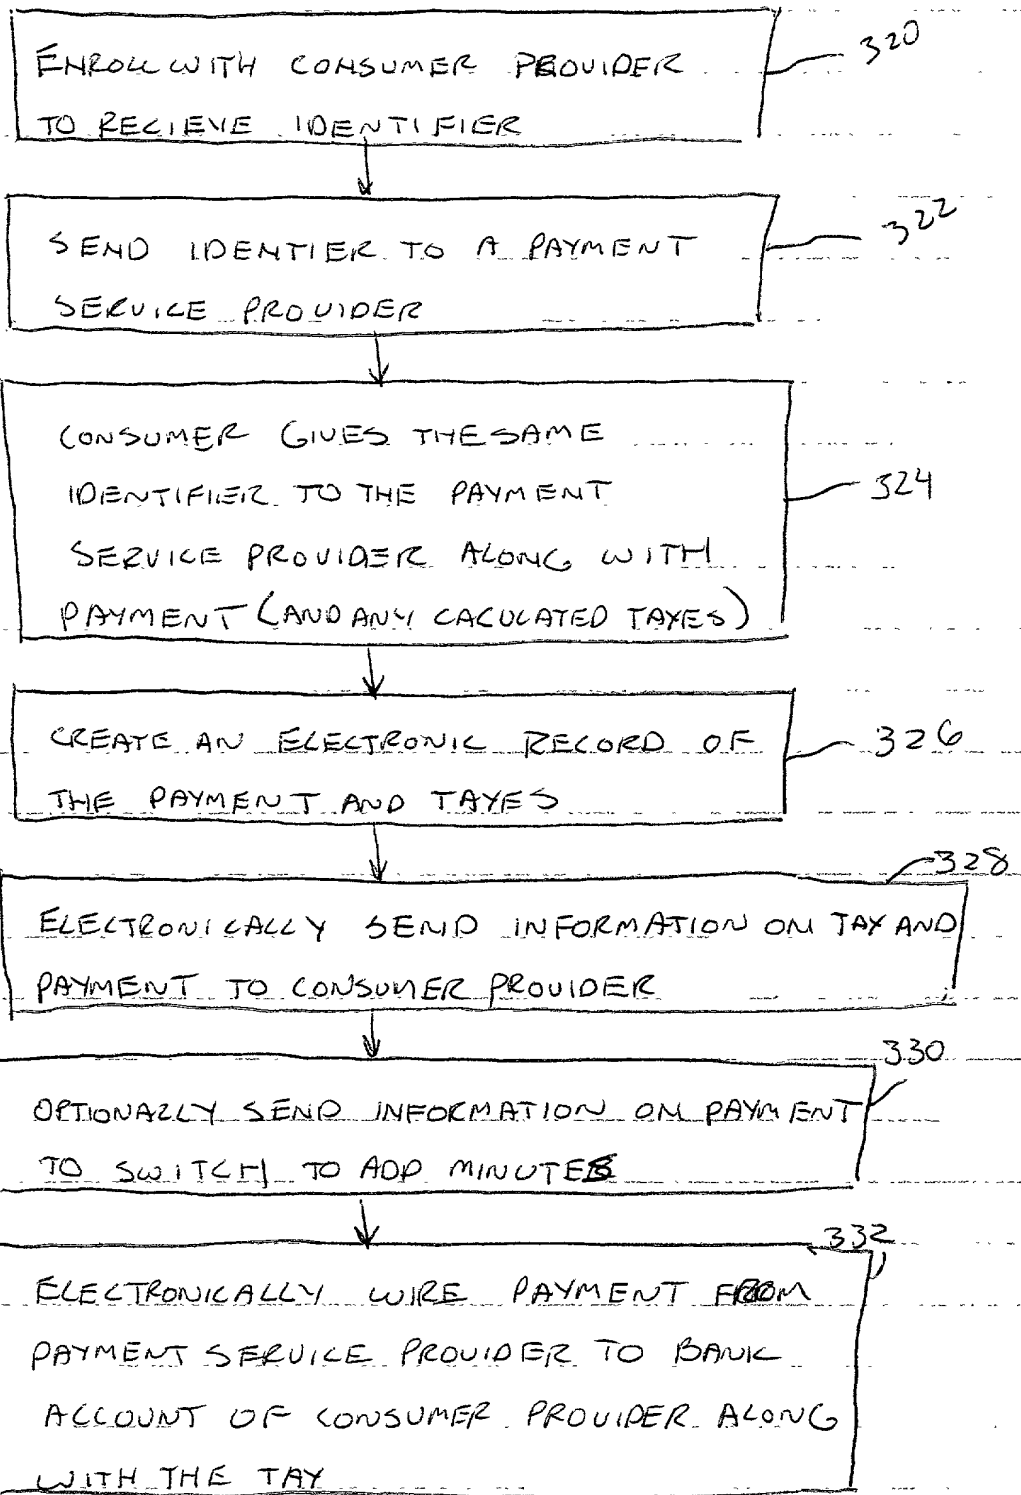 ENROLL WITH CONSUMER PROVIDER 320
TO RECIEVE IDENTIFIER
SEND IDENTIER TO A PAYMENT 322
SERVICE PROVIDER
CONSUMER GIVES THE SAME
IDENTIFIER TO THE PAYMENT 324
SERVICE PROVIDER ALONG WITH
PAYMENT (AND ANY CACULATED TAXES)
CREATE AN ELECTRONIC RECORD OF 326
THE PAYMENT AND TAXES
328
ELECTRONICALLY SEND INFORMATION ON TAX AND
PAYMENT TO CONSUMER PROVIDER
330
OPTIONALLY SEND INFORMATION ON PAYMENT
TO SWITCH TO ADD MINUTES
332
ELECTRONICALLY WIRE PAYMENT FROM
PAYMENT SERVICE PROVIDER TO BANK
ACCOUNT OF CONSUMER PROVIDER ALONG
WITH THE TAX